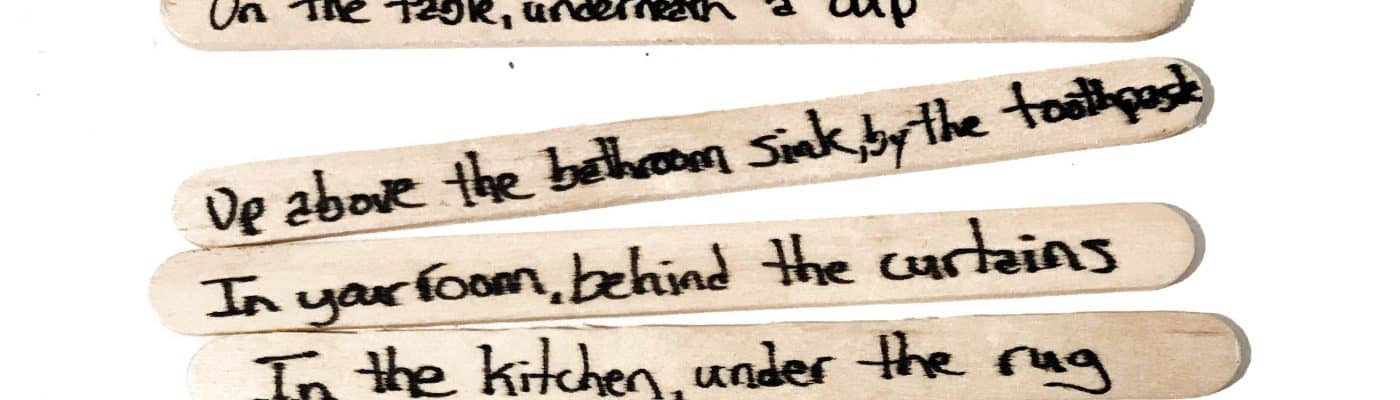 On the table, underneath a cup
Up above the bathroom sink, by the toothpaste
In your room, behind the curtains
In the kitchen, under the rug